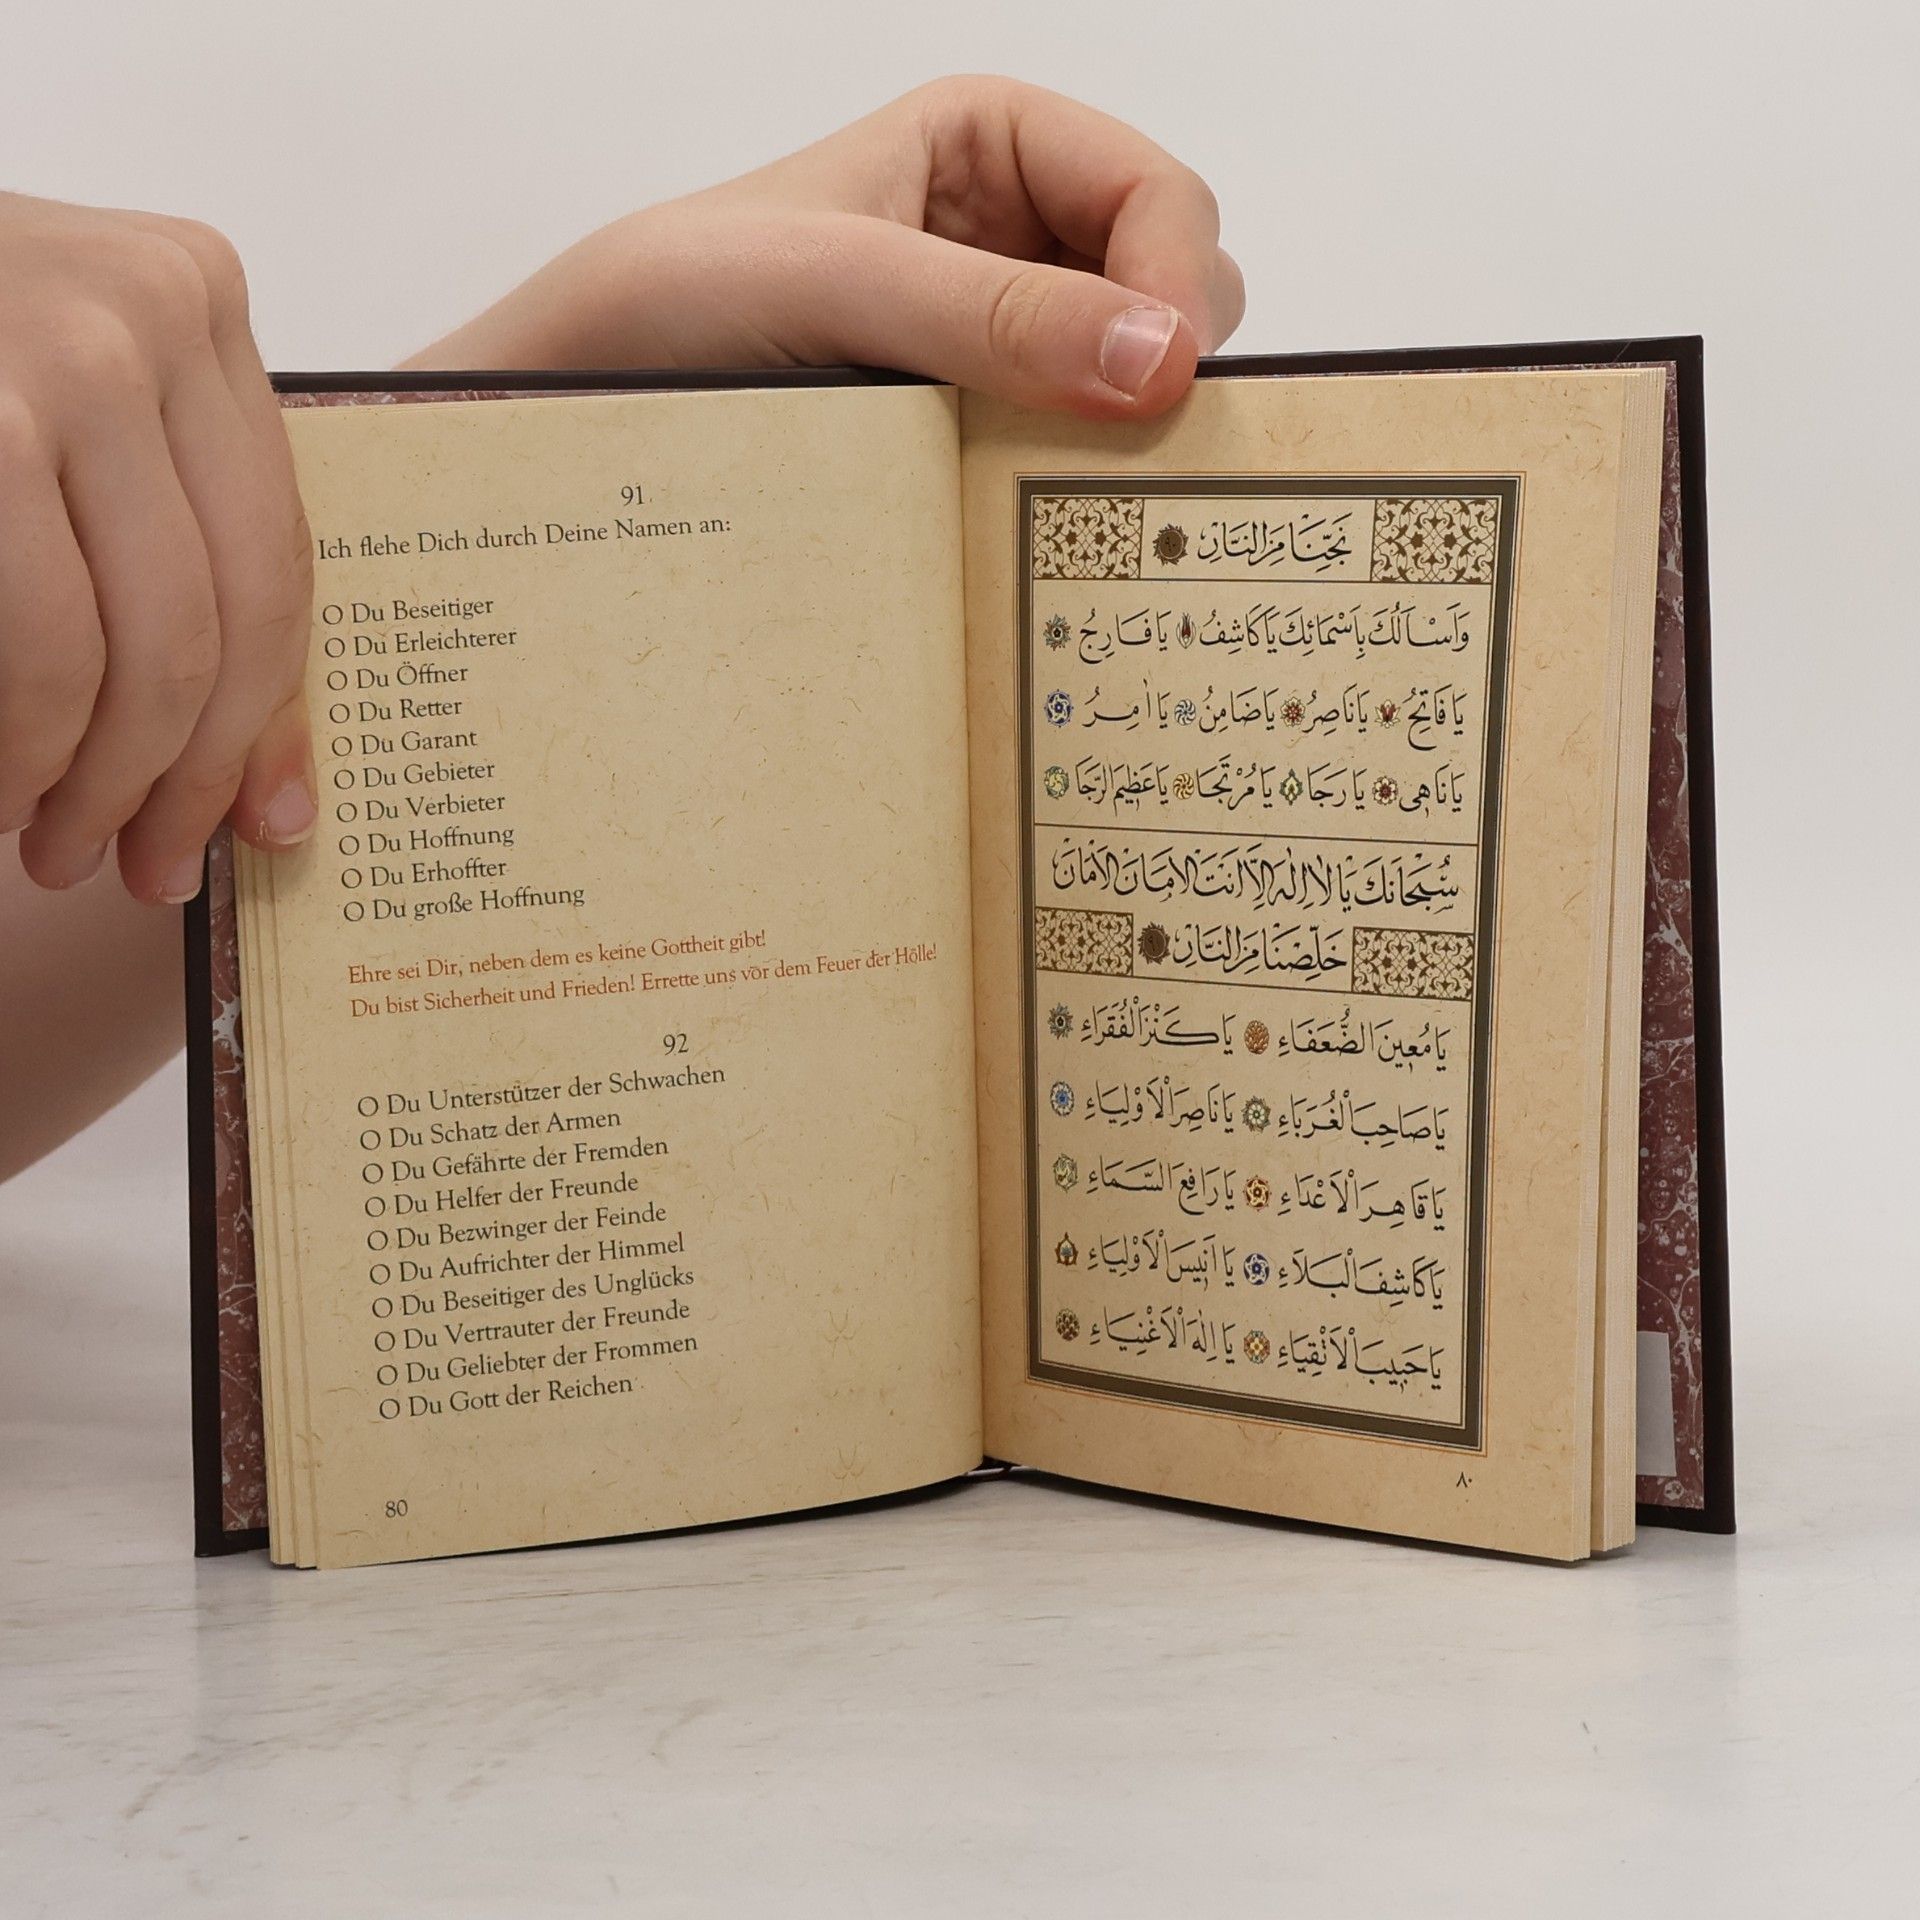 91
Ich flehe Dich durch Deine Namen an:
O Du Beseitiger
O Du Erleichterer
O Du Öffner
O Du Retter
O Du Garant
O Du Gebieter
O Du Verbieter
O Du Hoffnung
O Du Erhoffter
O Du große Hoffnung
Ehre sei Dir, neben dem es keine Gottheit gibt!
Du bist Sicherheit und Frieden! Errette uns vor dem Feuer der Hölle!
92
O Du Unterstützer der Schwachen
O Du Schatz der Armen
O Du Gefährte der Fremden
O Du Helfer der Freunde
O Du Bezwinger der Feinde
O Du Aufrichter der Himmel
O Du Beseitiger des Unglücks
O Du Vertrauter der Freunde
O Du Geliebter der Frommen
O Du Gott der Reichen
80
نَجِّنَا مِنَ النَّارِ ٩٠
وَاَسْاَلُكَ بِاَسْمَائِكَ يَا كَاشِفُ يَا فَارِجُ
يَا فَاتِحُ يَا نَاصِرُ يَا ضَامِنُ يَا اٰمِرُ
يَا نَاهِى يَا رَجَا يَا مُرْتَجَا يَا عَظِيمَ الرَّجَا
سُبْحَانَكَ يَا لَا اِلٰهَ اِلَّا اَنْتَ الْاَمَانَ الْاَمَانَ
خَلِّصْنَا مِنَ النَّارِ
يَا مُعِينَ الضُّعَفَاءِ يَا كَنْزَ الْفُقَرَاءِ
يَا صَاحِبَ الْغُرَبَاءِ يَا نَاصِرَ الْاَوْلِيَاءِ
يَا قَاهِرَ الْاَعْدَاءِ يَا رَافِعَ السَّمَاءِ
يَا كَاشِفَ الْبَلَاءِ يَا اَنِيسَ الْاَوْلِيَاءِ
يَا حَبِيبَ الْاَتْقِيَاءِ يَا اِلٰهَ الْاَغْنِيَاءِ
٨٠